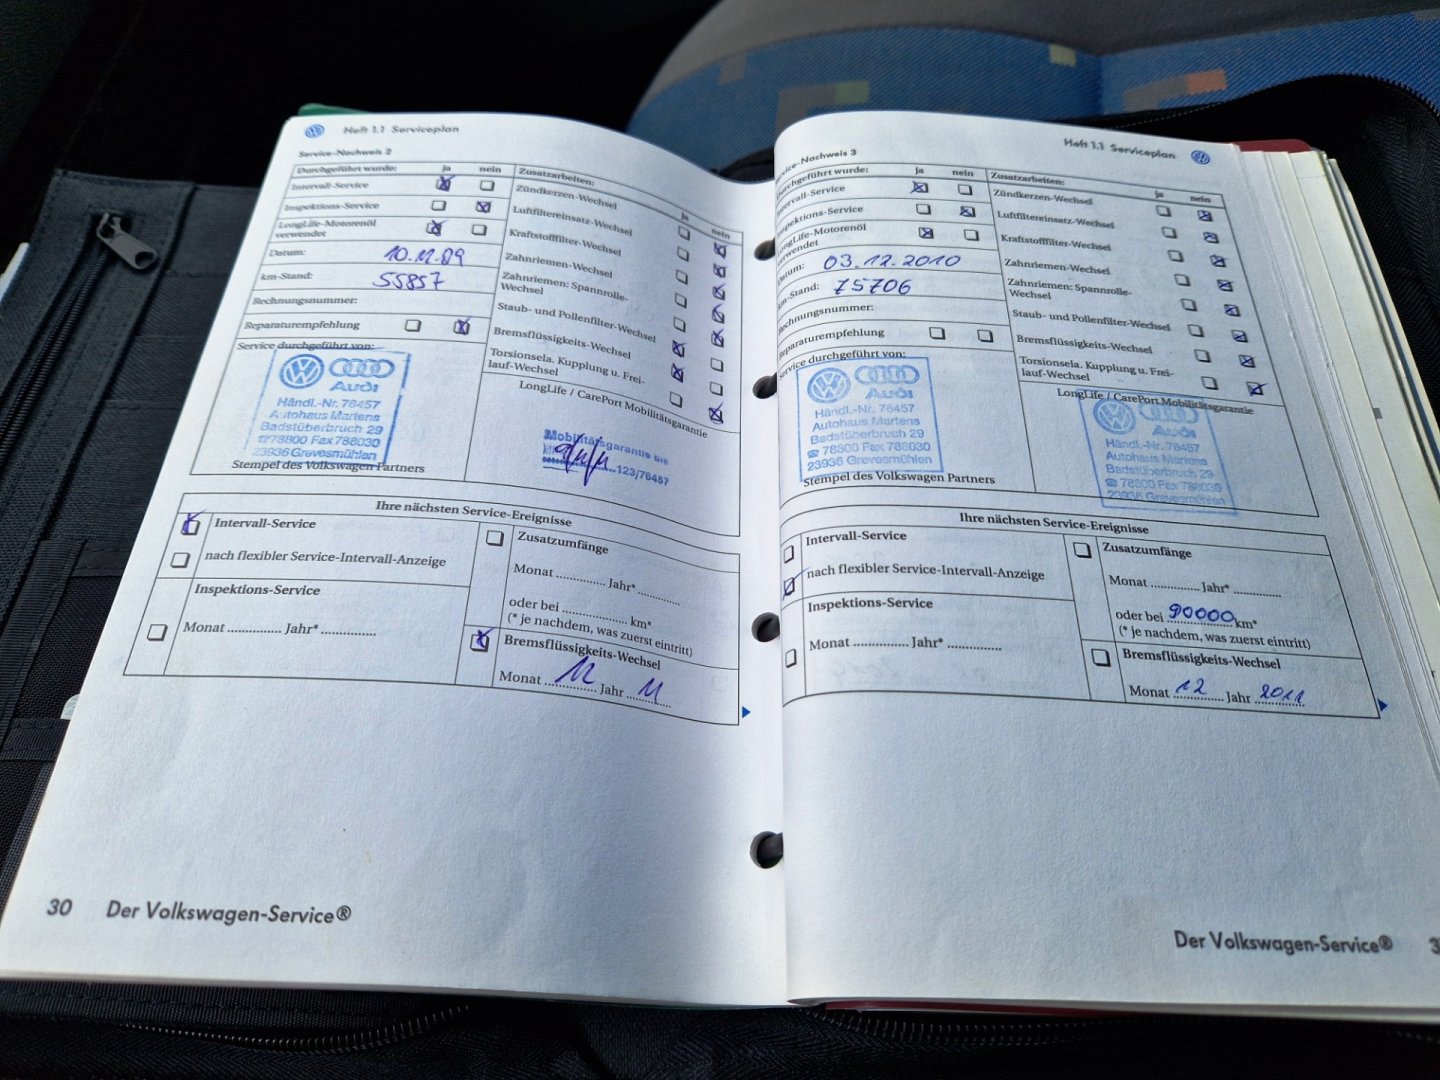 Heft 1.1 Serviceplan
Service-Nachweis 2
Durchgeführt wurde: ja nein
Intervall-Service
Inspektions-Service
LongLife-Motorenöl
verwendet
Datum: 10.12.09
km-Stand: 55857
Rechnungsnummer:
Reparaturempfehlung
Service durchgeführt von:
Audi
Händl.-Nr. 76457
Autohaus Martens
Badstüberbruch 29
☎78800 Fax 788030
23936 Grevesmühlen
Stempel des Volkswagen Partners
Zusatzarbeiten:
ja nein
Zündkerzen-Wechsel
Luftfiltereinsatz-Wechsel
Kraftstofffilter-Wechsel
Zahnriemen-Wechsel
Zahnriemen: Spannrolle-
Wechsel
Staub- und Pollenfilter-Wechsel
Bremsflüssigkeits-Wechsel
Torsionsela. Kupplung u. Frei-
lauf-Wechsel
LongLife / CarePort Mobilitätsgarantie
Mobilitätsgarantie bis
123/76457
Ihre nächsten Service-Ereignisse
Intervall-Service
nach flexibler Service-Intervall-Anzeige
Inspektions-Service
Monat ............... Jahr* ...............
Zusatzumfänge
Monat ............... Jahr* ............
oder bei .................. km*
(* je nachdem, was zuerst eintritt)
Bremsflüssigkeits-Wechsel
Monat 12 Jahr 11
30 Der Volkswagen-Service®
Heft 1.1 Serviceplan
Service-Nachweis 3
Durchgeführt wurde: ja nein
Intervall-Service
Inspektions-Service
LongLife-Motorenöl
verwendet
Datum: 03.12.2010
km-Stand: 75706
Rechnungsnummer:
Reparaturempfehlung
Service durchgeführt von:
Audi
Händl.-Nr. 76457
Autohaus Martens
Badstüberbruch 29
☎ 78800 Fax 788030
23936 Grevesmühlen
Stempel des Volkswagen Partners
Zusatzarbeiten:
ja nein
Zündkerzen-Wechsel
Luftfiltereinsatz-Wechsel
Kraftstofffilter-Wechsel
Zahnriemen-Wechsel
Zahnriemen: Spannrolle-
Wechsel
Staub- und Pollenfilter-Wechsel
Bremsflüssigkeits-Wechsel
Torsionsela. Kupplung u. Frei-
lauf-Wechsel
LongLife / CarePort Mobilitätsgarantie
Audi
Händl.-Nr. 76457
Autohaus Martens
Badstüberbruch 29
☎ 78800 Fax 788030
23936 Grevesmühlen
Ihre nächsten Service-Ereignisse
Intervall-Service
nach flexibler Service-Intervall-Anzeige
Inspektions-Service
Monat ............... Jahr* ...............
Zusatzumfänge
Monat ............... Jahr* ...............
oder bei 90000 km*
(* je nachdem, was zuerst eintritt)
Bremsflüssigkeits-Wechsel
Monat 12 Jahr 2011
Der Volkswagen-Service®